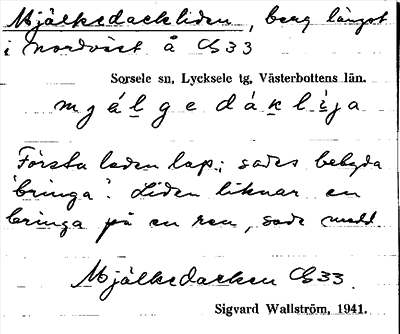 Mjälkedackliden, berg längst
i nordväst å Cb33
Sorsele sn, Lycksele tg, Västerbottens län.
m j á l g e d á k l i j a
Första leden lap.; sades betyda
'bringa'. Liden liknar en
bringa på en ren, sade medd.
Mjälkedacken Cb33.
Sigvard Wallström, 1941.